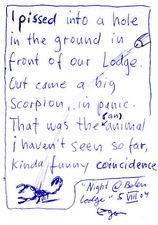 I pissed into a hole
in the ground in
front of our Lodge.
Out came a big
Scorpion.. in panic.
That was the (an) animal
i haven't seen so far,
Kinda funny coincidence
"Night @
Lodge" 5 VIII 07